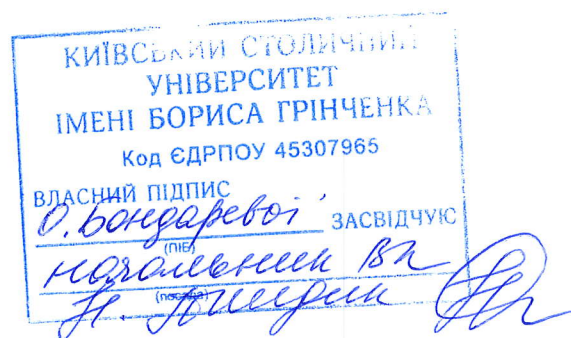 КИЇВСЬКИЙ СТОЛИЧНИЙ
УНІВЕРСИТЕТ
ІМЕНІ БОРИСА ГРІНЧЕНКА
Код ЄДРПОУ 45307965
ВЛАСНИЙ ПІДПИС
О. Бондаревої ЗАСВІДЧУЮ
(ПІБ)
начальник ВК
(посада)
Н.